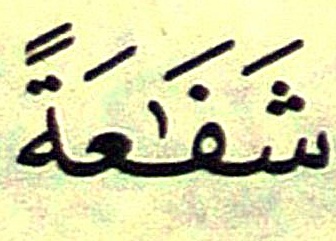 شَفَـٰعَةً